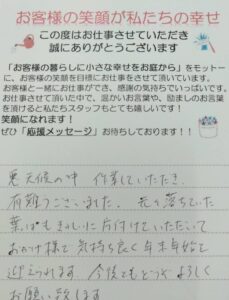 お客様の笑顔が私たちの幸せ
この度はお仕事させていただき
誠にありがとうございます
「お客様の暮らしに小さな幸せをお庭から」をモットー
に、お客様の笑顔を目標にお仕事をさせて頂いています。
お客様と一緒にお仕事ができ、感謝の気持ちでいっぱいです。
お仕事させて頂いた中で、温かいお言葉や、励ましのお言葉
を頂けると私たちスタッフもとても嬉しいです!
笑顔になれます!
ぜひ「応援メッセージ」お待ちしております!!
悪天候の中 作業していただき、
有難うございました。元々落ちていた
葉っぱもきれいに片付けていただいて
おかげ様で気持ち良く年末年始を
迎えられます。今後ともどうぞよろしく
お願い致します